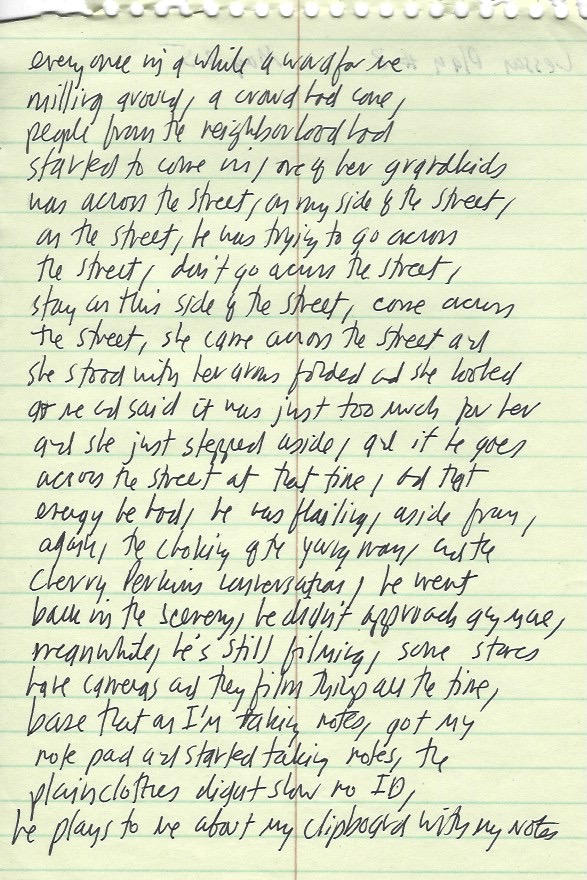 every once in a while a word for me
milling around, a crowd had come,
people from the neighborhood had
started to come in, one of her grandkids
was across the street, on my side of the street,
on the street, he was trying to go across
the street, don't go across the street,
stay on this side of the street, come across
the street, she came across the street and
she stood with her arms folded and she looked
at me and said it was just too much for her
and she just stepped aside, and if he goes
across the street at that time, and that
energy he had, he was flailing, aside from,
again, the choking of the young man, and the
Cherry Perkins conversation, he went
back in the scenery, he didn't approach anymore,
meanwhile, he's still filming, some stores
have cameras and they film things all the time,
base that on I'm taking notes, got my
note pad and started taking notes, the
plainclothes didn't show no ID,
he plays to me about my clipboard with my notes